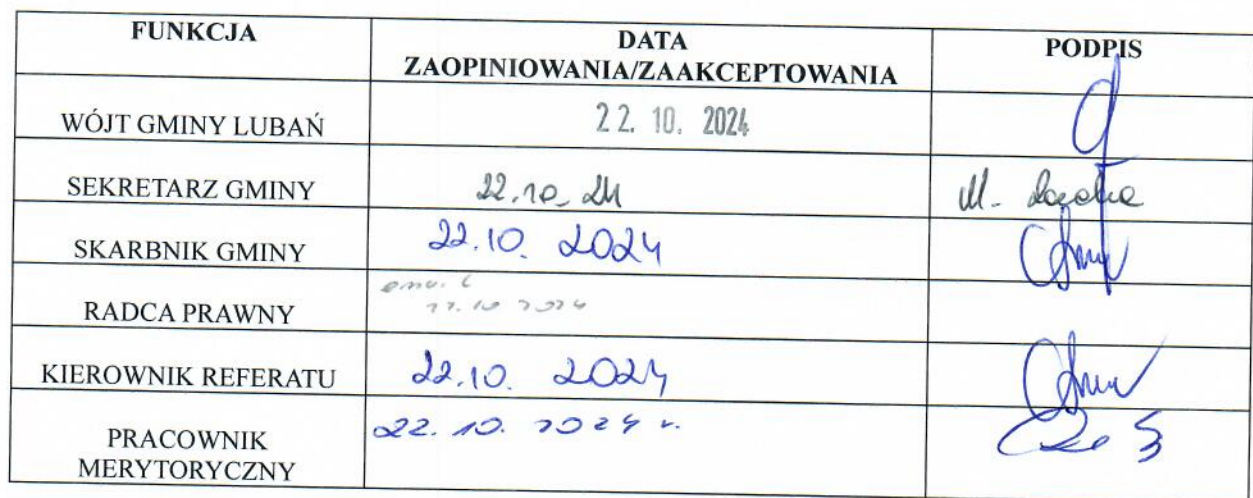 FUNKCJA DATA PODPIS
ZAOPINIOWANIA/ZAAKCEPTOWANIA
WÓJT GMINY LUBAŃ 22. 10. 2024
SEKRETARZ GMINY 22.10.24 M.
SKARBNIK GMINY 22.10. 2024
RADCA PRAWNY 22.10 2024
KIEROWNIK REFERATU 22.10. 2024
PRACOWNIK 22. 10. 2024 r.
MERYTORYCZNY